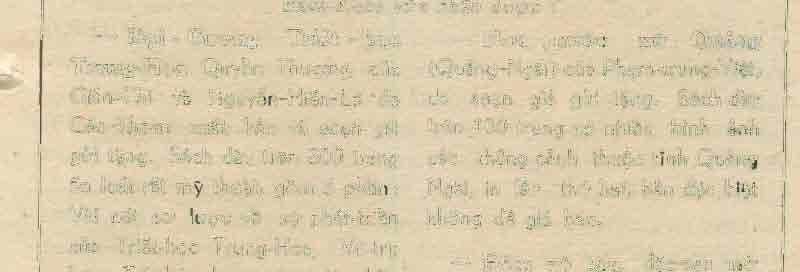 — Đại-Cương Triết-học
Trung-Hoa, Quyển Thượng, của
Giản-Chi và Nguyễn-Hiến-Lê do
Cảo-Thơm xuất bản và soạn giả
gửi tặng. Sách dầy trên 800 trang
ấn loát rất mỹ thuật, gồm 2 phần:
Với nét sơ lược về sự phát-triển
của Triết-học Trung-Hoa, Vũ-trụ
— Non nước xứ Quảng
(Quảng-Ngãi) của Phạm-trung-Việt,
do soạn giả gửi tặng. Sách dầy
trên 300 trang có nhiều hình ảnh
các thắng cảnh thuộc tỉnh Quảng
Ngãi, in lần thứ hai, bản đặc biệt
không đề giá bán.